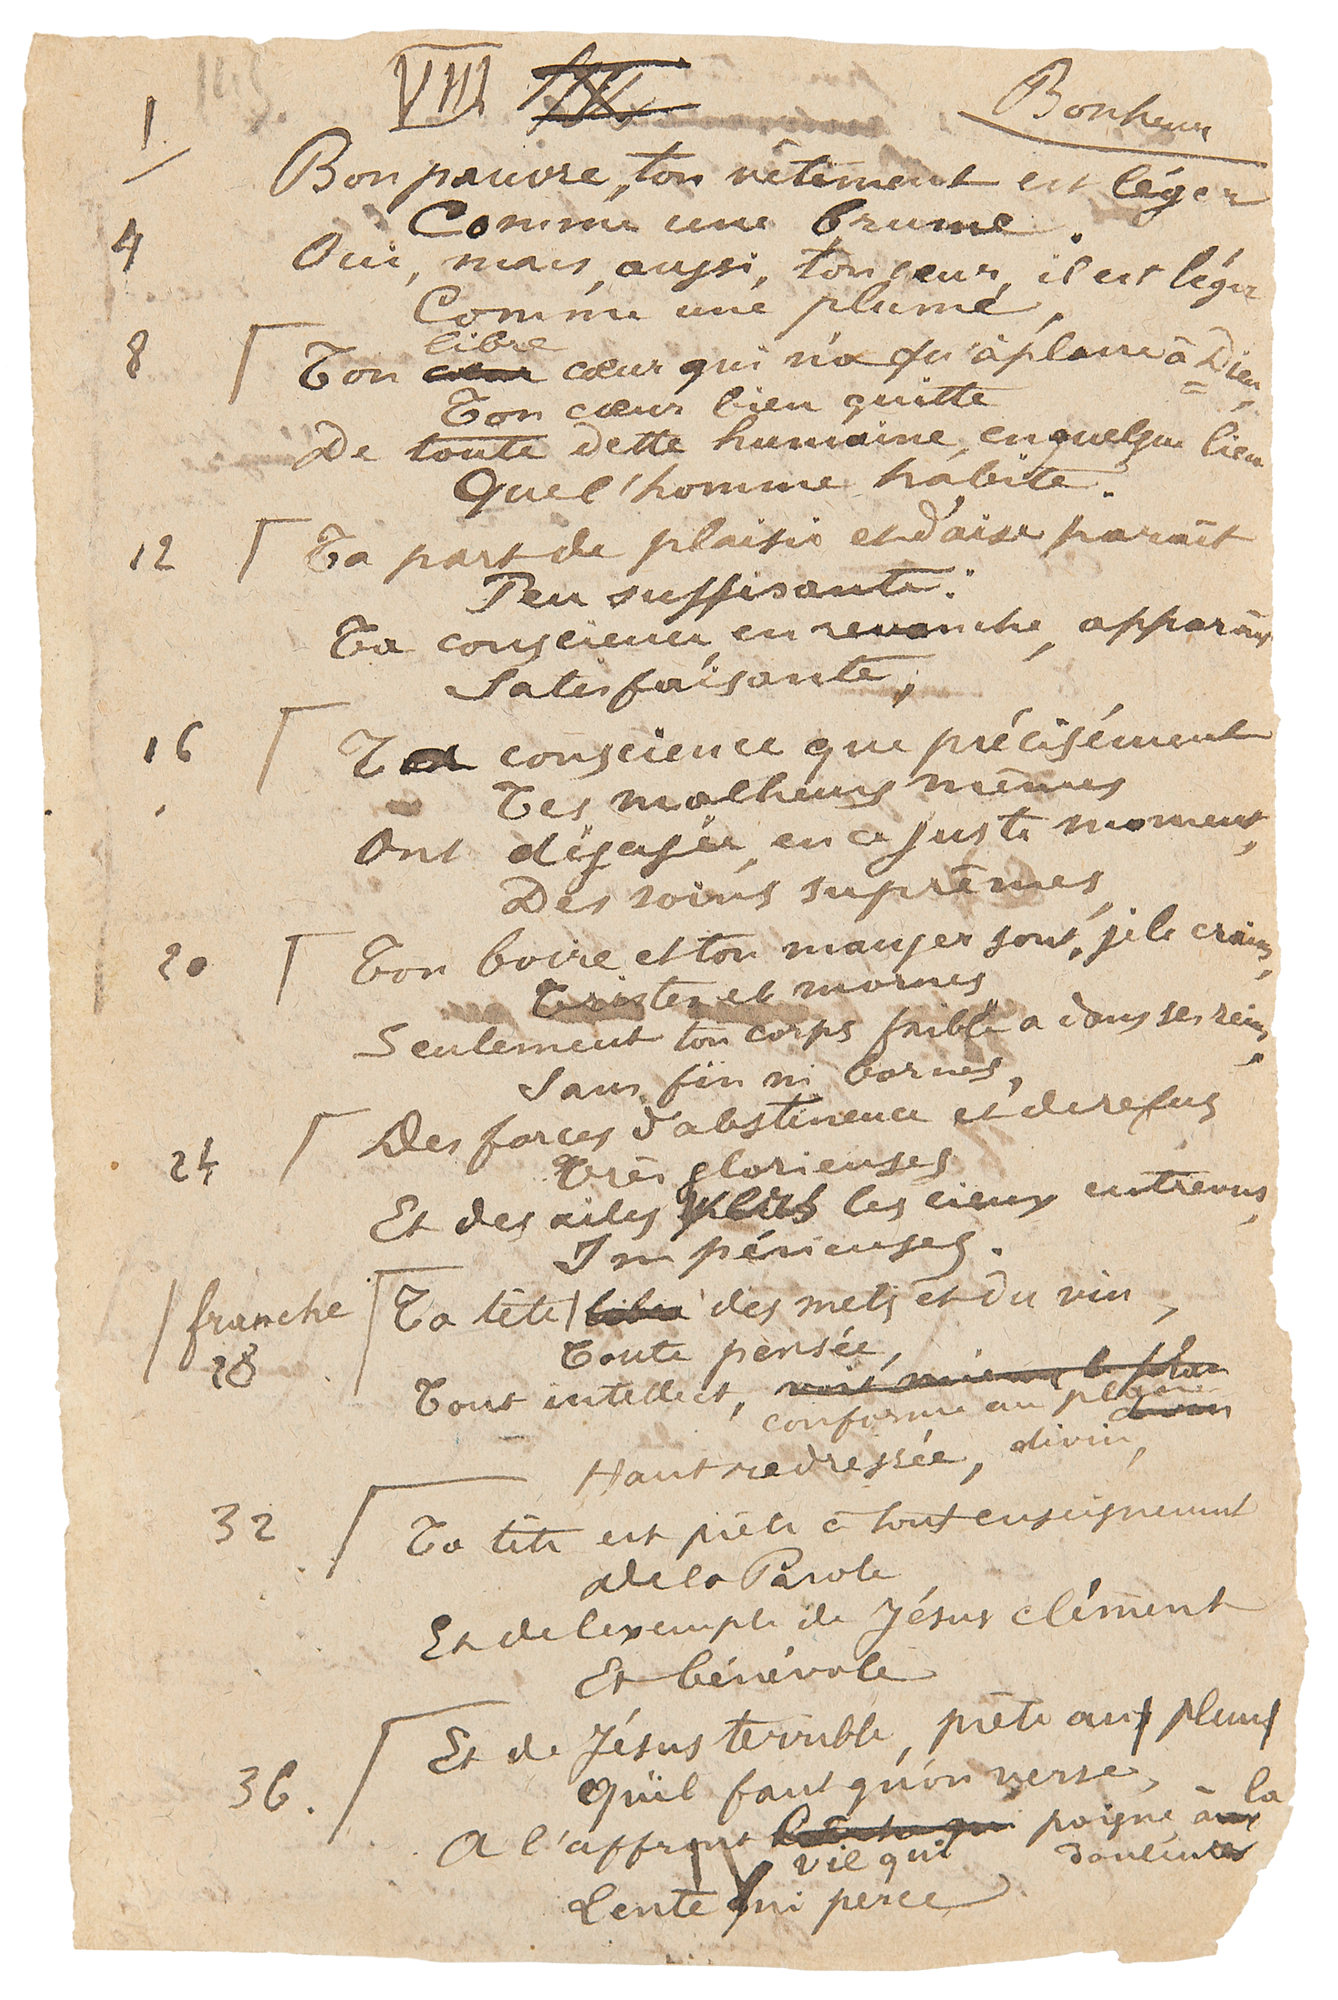 VIII
Bonheur
1
Bon pauvre, ton vêtement est léger
Comme une brume.
4
Oui, mais, aussi, ton cœur, il est léger
Comme une plume,
libre
8
Ton cœur cœur qui n'a qu'à plaire à Dieu,
Ton cœur bien quitte
De toute dette humaine, en quelque lieu
Que l'homme habite.
12
Ta part de plaisir et d'aise paraît
Peu suffisante.
Ta conscience, en revanche, apparaît
Satisfaisante,
16
Ta conscience que précisément
Tes malheurs mêmes
Ont dégagée, en ce juste moment,
Des soins suprêmes,
20
Ton boire et ton manger sont, je le crains,
Tristes et mornes
Seulement ton corps faible a dans ses reins,
Sans fin ni bornes,
24
Des forces d'abstinence et de refus
Très glorieuses
Et des ailes vers les cieux entrevus,
Impérieuses.
franche
Ta tête libre des mets et du vin,
28
Toute pensée,
Tout intellect, voit mieux le plan
conforme au plan divin
divin,
Haut redressée,
32
Ta tête est prête à tout enseignement
De la Parole
Et de l'exemple de Jésus clément
Et bénévole
Et de Jésus terrible, prête aux pleurs
36.
Qu'il faut qu'on verse,
A l'affront qui poigne aux la
vil qui douleurs
Lente qui perce